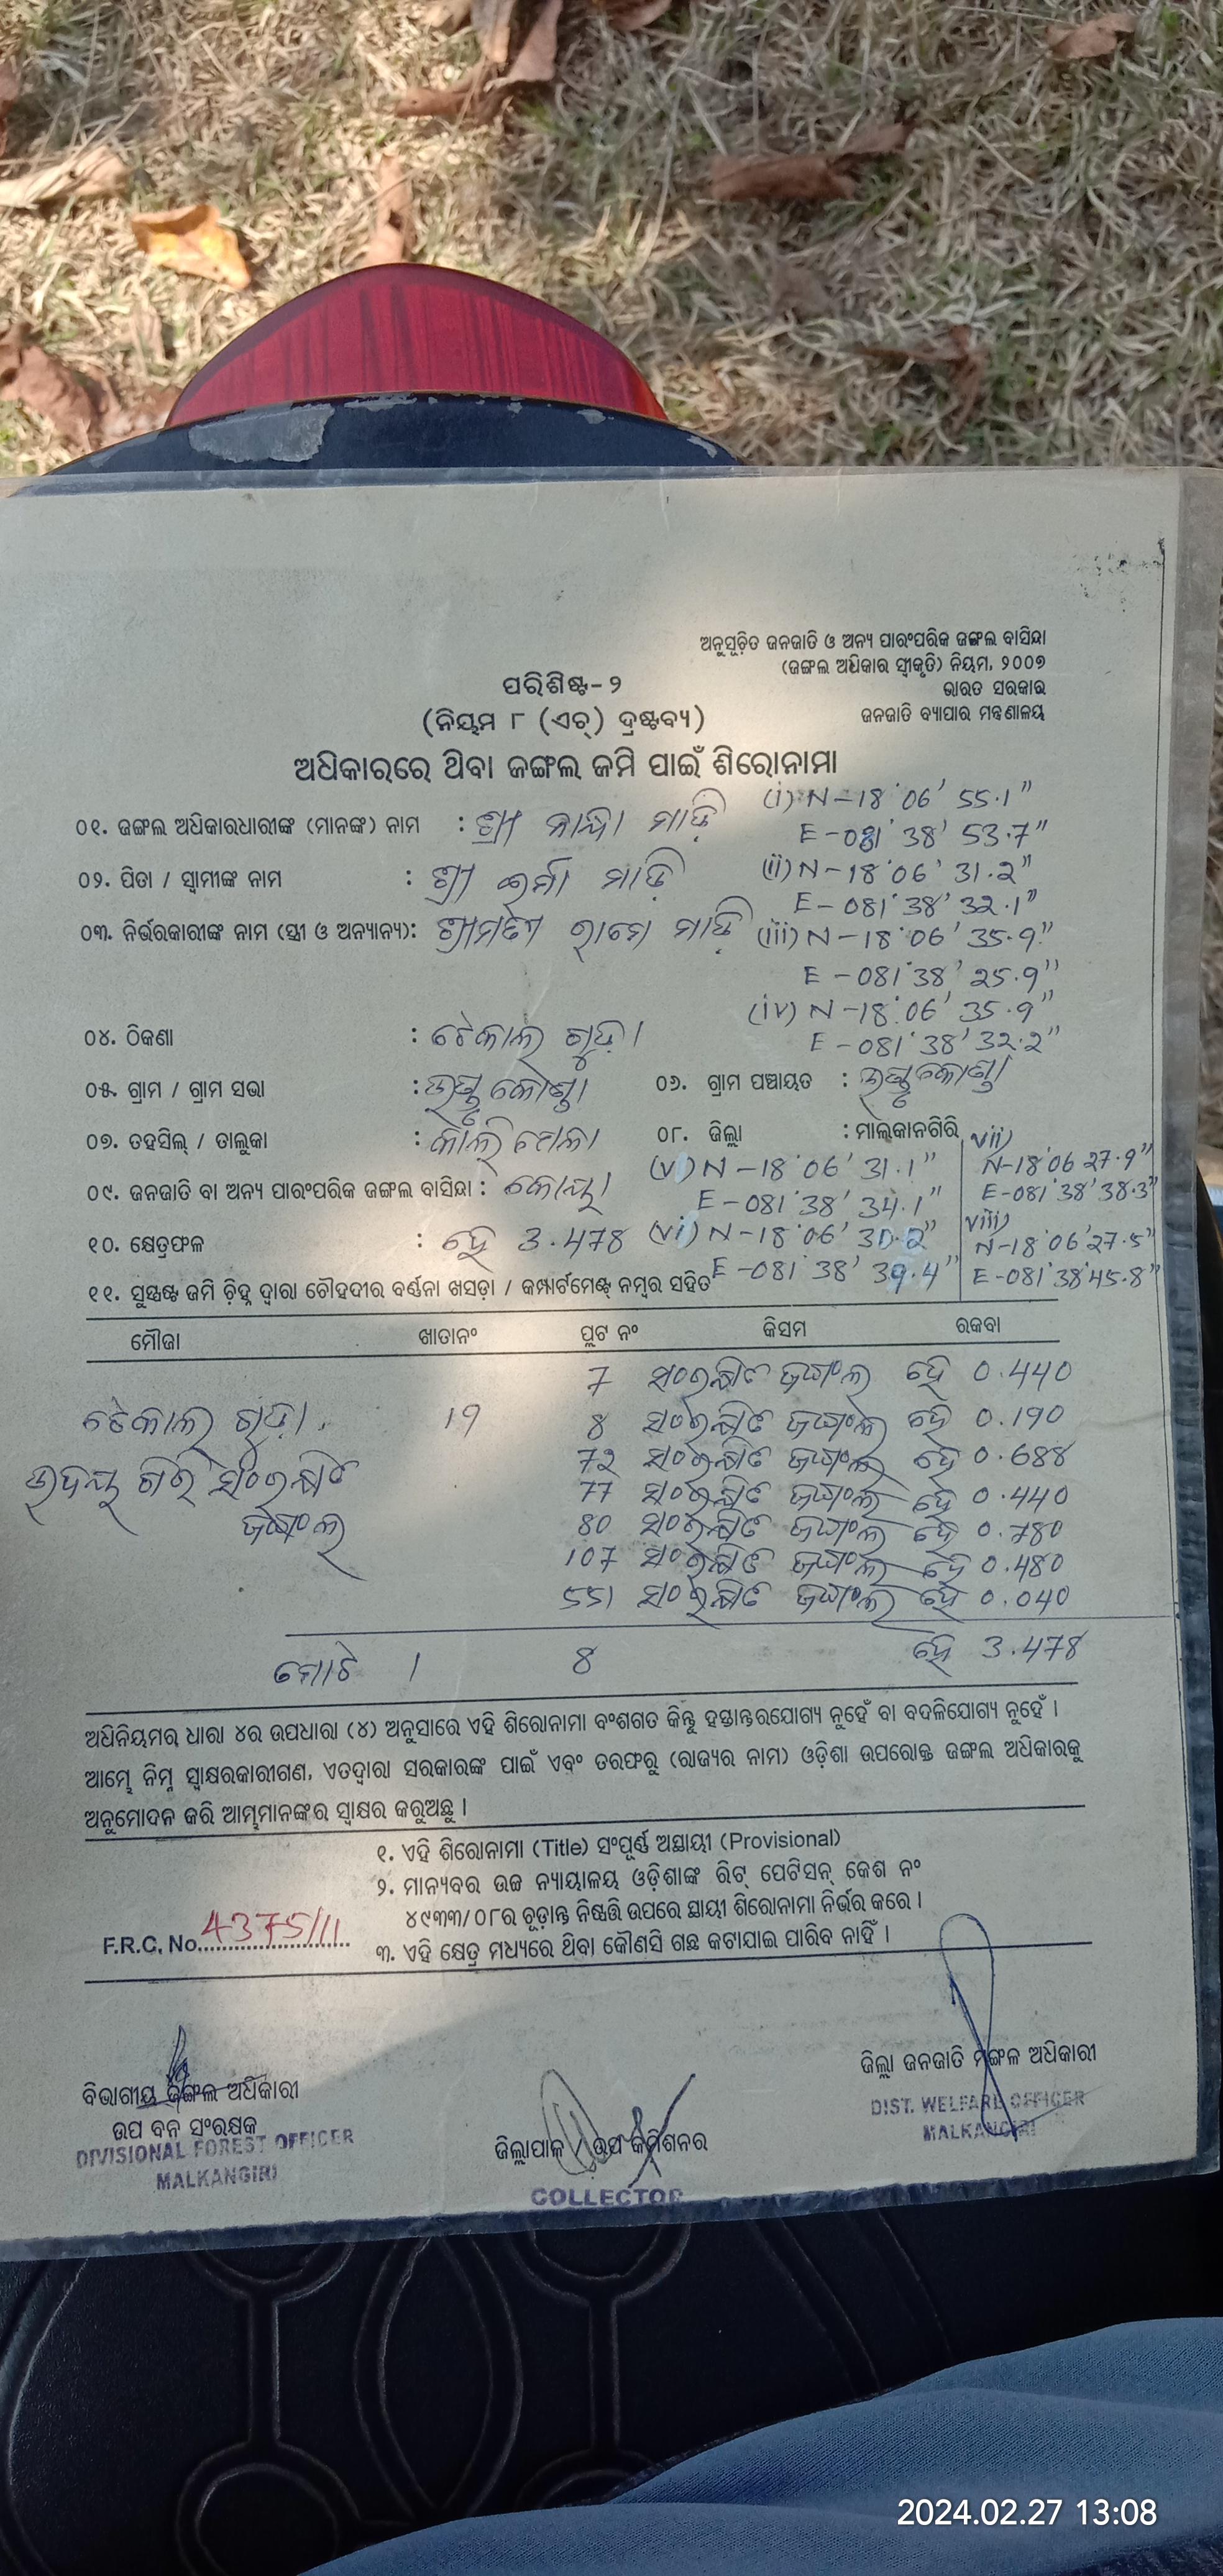 ଅନୁସୂଚିତ ଜନଜାତି ଓ ଅନ୍ୟ ପାରଂପରିକ ଜଙ୍ଗଲ ବାସିନ୍ଦା
(ଜଙ୍ଗଲ ଅଧିକାର ସ୍ୱୀକୃତି) ନିୟମ, ୨୦୦୭
ଭାରତ ସରକାର
ଜନଜାତି ବ୍ୟାପାର ମନ୍ତ୍ରଣାଳୟ
ପରିଶିଷ୍ଟ-୨
(ନିୟମ ୮ (ଏଚ୍) ଦ୍ରଷ୍ଟବ୍ୟ)
ଅଧିକାରରେ ଥିବା ଜଙ୍ଗଲ ଜମି ପାଇଁ ଶିରୋନାମା
(i) N-18°06' 55.1"
୦୧. ଜଙ୍ଗଲ ଅଧିକାରଧାରୀଙ୍କ (ମାନଙ୍କ) ନାମ : ଶ୍ରୀ ମାଡ଼ି E-081°38' 53.7"
୦୨. ପିତା / ସ୍ୱାମୀଙ୍କ ନାମ : ଶ୍ରୀ ଇର୍ମା ମାଡ଼ି (ii) N-18°06' 31.2"
E-081°38' 32.1"
୦୩. ନିର୍ଭରକାରୀଙ୍କ ନାମ (ସ୍ତ୍ରୀ ଓ ଅନ୍ୟାନ୍ୟ): ଶ୍ରୀମତୀ ରାମେ ମାଡ଼ି (iii) N-18°06' 35.9"
E-081°38' 25.9"
(iv) N-18°06' 35.9"
୦୪. ଠିକଣା : ଟେକାଲ୍ ଗୁଡ଼ା E-081°38' 32.2"
୦୫. ଗ୍ରାମ / ଗ୍ରାମ ସଭା : ୦୬. ଗ୍ରାମ ପଞ୍ଚାୟତ :
୦୭. ତହସିଲ୍ / ତାଲୁକା : କାଲିମେଳା ୦୮. ଜିଲ୍ଲା : ମାଲକାନଗିରି vii)
(v) N-18°06' 31.1" N-18°06 27.9"
୦୯. ଜନଜାତି ବା ଅନ୍ୟ ପାରଂପରିକ ଜଙ୍ଗଲ ବାସିନ୍ଦା : କୋୟା E-081°38' 34.1" E-081°38' 38.3"
୧୦. କ୍ଷେତ୍ରଫଳ : ହେ 3.478 (vi) N-18°06' viii) N-18°06'27.5"
୧୧. ସୁସ୍ପଷ୍ଟ ଜମି ଚିହ୍ନ ଦ୍ୱାରା ଚୌହଦୀର ବର୍ଣ୍ଣନା ଖସଡ଼ା / କମ୍ପାର୍ଟମେଣ୍ଟ ନମ୍ବର ସହିତ E-081°38' 39.4" E-081°38'45.8"
ମୌଜା ଖାତାନଂ ପ୍ଲଟ ନଂ କିସମ ରକବା
7 ସଂରକ୍ଷିତ ଜଙ୍ଗଲ ହେ 0.440
ଟେକାଲ୍ ଗୁଡ଼ା. 19 8 ସଂରକ୍ଷିତ ଜଙ୍ଗଲ ହେ 0.190
72 ସଂରକ୍ଷିତ ଜଙ୍ଗଲ ହେ 0.688
ଉଦୟ ଗିରି ସଂରକ୍ଷିତ 77 ସଂରକ୍ଷିତ ଜଙ୍ଗଲ ହେ 0.440
ଜଙ୍ଗଲ 80 ସଂରକ୍ଷିତ ଜଙ୍ଗଲ ହେ 0.780
107 ସଂରକ୍ଷିତ ଜଙ୍ଗଲ ହେ 0.480
551 ସଂରକ୍ଷିତ ଜଙ୍ଗଲ ହେ 0.040
ମୋଟ 1 8 ହେ 3.478
ଅଧିନିୟମର ଧାରା ୪ର ଉପଧାରା (୪) ଅନୁସାରେ ଏହି ଶିରୋନାମା ବଂଶଗତ କିନ୍ତୁ ହସ୍ତାନ୍ତରଯୋଗ୍ୟ ନୁହେଁ ବା ବଦଳିଯୋଗ୍ୟ ନୁହେଁ ।
ଆମ୍ଭେ ନିମ୍ନ ସ୍ୱାକ୍ଷରକାରୀଗଣ, ଏତଦ୍ଵାରା ସରକାରଙ୍କ ପାଇଁ ଏବଂ ତରଫରୁ (ରାଜ୍ୟର ନାମ) ଓଡ଼ିଶା ଉପରୋକ୍ତ ଜଙ୍ଗଲ ଅଧିକାରକୁ
ଅନୁମୋଦନ କରି ଆମ୍ଭମାନଙ୍କର ସ୍ୱାକ୍ଷର କରୁଅଛୁ ।
୧. ଏହି ଶିରୋନାମା (Title) ସଂପୂର୍ଣ୍ଣ ଅସ୍ଥାୟୀ (Provisional)
୨. ମାନ୍ୟବର ଉଚ୍ଚ ନ୍ୟାୟାଳୟ ଓଡ଼ିଶାଙ୍କ ରିଟ୍ ପେଟିସନ୍ କେଶ ନଂ
୪୯୩୩/୦୮ର ଚୂଡ଼ାନ୍ତ ନିଷ୍ପତ୍ତି ଉପରେ ସ୍ଥାୟୀ ଶିରୋନାମା ନିର୍ଭର କରେ ।
F.R.C. No. 4375/11
୩. ଏହି କ୍ଷେତ୍ର ମଧ୍ୟରେ ଥିବା କୌଣସି ଗଛ କଟାଯାଇ ପାରିବ ନାହିଁ ।
ବିଭାଗୀୟ ଜଙ୍ଗଲ ଅଧିକାରୀ
ଉପ ବନ ସଂରକ୍ଷକ
DIVISIONAL FOREST OFFICER
MALKANGIRI
ଜିଲ୍ଲାପାଳ / ଉପ କମିଶନର
COLLECTOR
ଜିଲ୍ଲା ଜନଜାତି ମଙ୍ଗଳ ଅଧିକାରୀ
DIST. WELFARE OFFICER
MALKANGIRI
2024.02.27 13:08